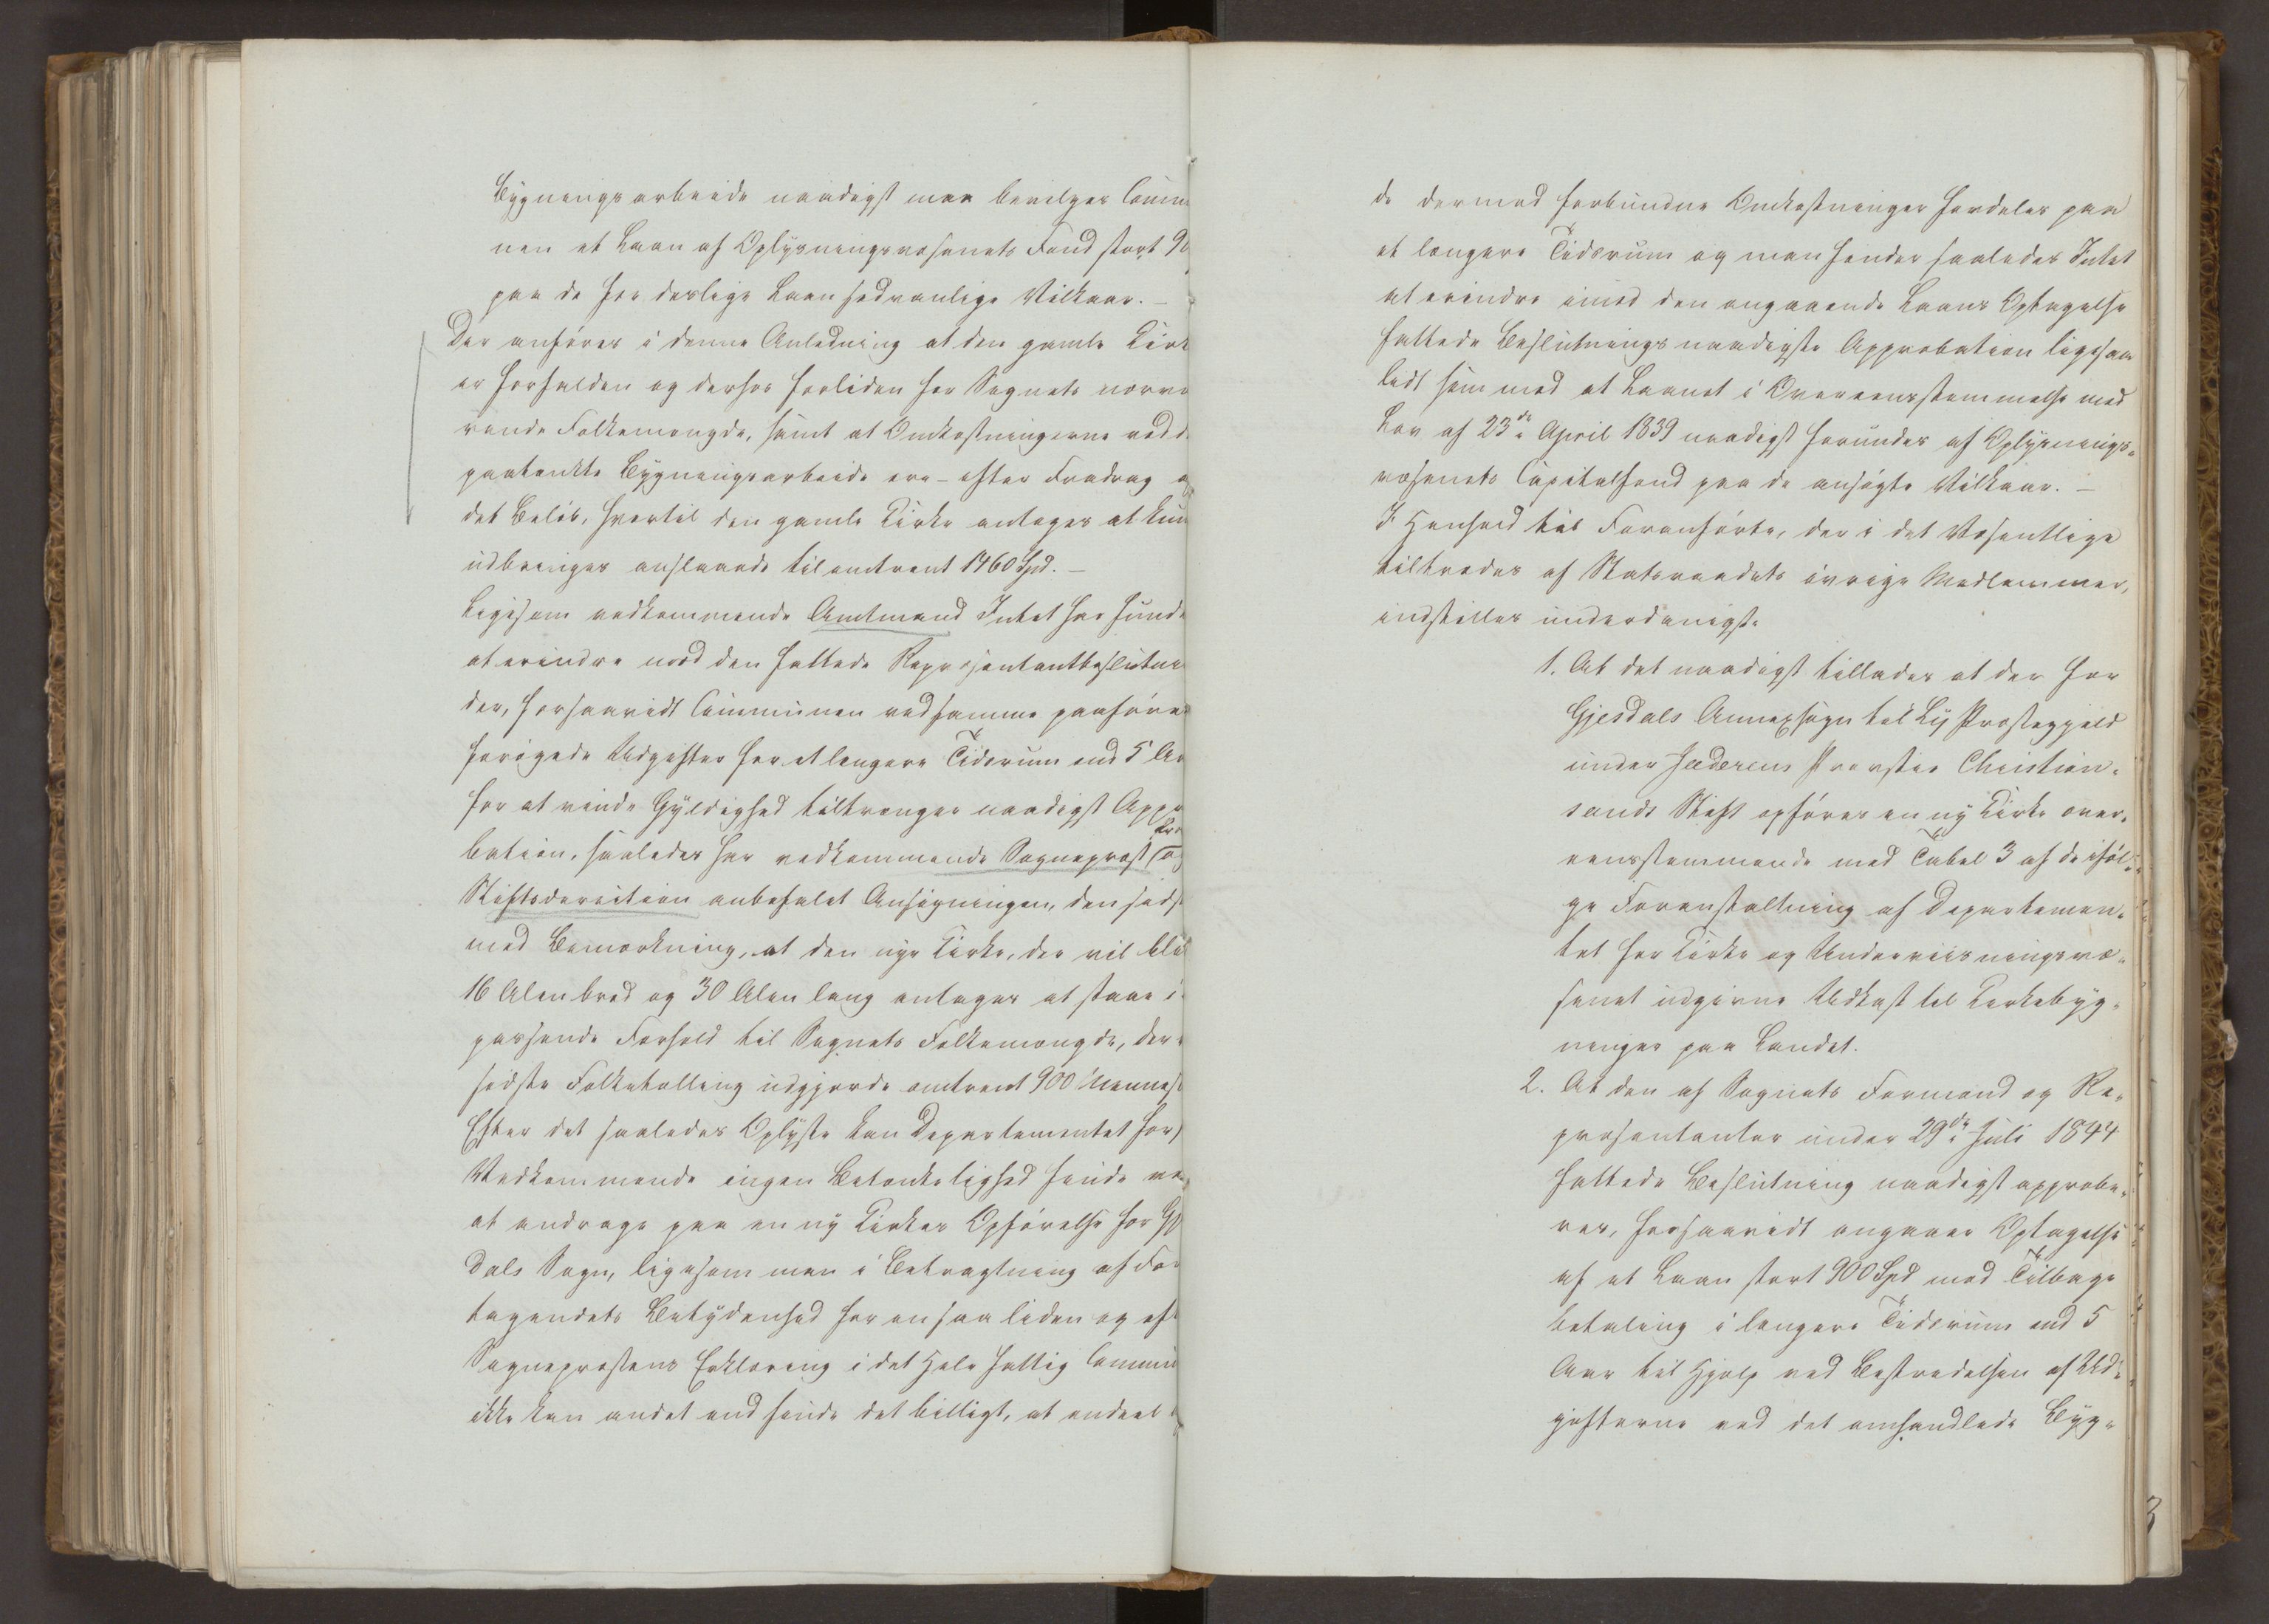 Bygningsarbeide naadigst maa bevilges Comm
nen et Laan af Oplysningsvæsenets Fond stort 90
paa de for deslige Laan sedvanlige Vilkaar. –
Der anføres i denne Anledning at den gamle Kirk
er forfalden og derhos forliden for Sognets nærvæ
rende Folkemængde, samt at Omkostningerne ved d
paatænkte Bygningsarbeide ere – efter Fradrag a
det Beløb, hvortil den gamle Kirke antages at kun
udbringes anslaaede til omtrent 1460 Spd. –
Ligesom vedkommende Amtmand Intet har fund
at erindre mod den fattede Repræsentantbeslutni
der, forsaavidt Communen ved samme paaføres
forøgede Udgifter for et længere Tidsrum end 5 Aa
for at vinde Gyldighed tiltrænger naadigst Appro
bation, saaledes har vedkommende Sogneprest og
Stiftsdirection anbefalet Ansøgningen, den sidst
med Bemærkning, at den nye Kirke, der vil bliv
16 Alen bred og 30 Alen lang antages at staae i
passende Forhold til Sognets Folkemængde, der
sidste Folketælling udgjorde omtrent 900 Mennesk
Efter det saaledes Oplyste kan Departementet for
Vedkommende ingen Betænkelighed finde ve
at andrage paa en ny Kirkes Opførelse for Gj
dals Sogn, ligesom man i Betragtning af For
tagendets Betydenhed for en saa liden og eft
Sogneprestens Erklæring i det Hele fattig Commu
ikke kan andet end finde det billigt, at endeel
de dermed forbundne Omkostninger fordeles paa
et længere Tidsrum og man finder saaledes Intet
at erindre imod den angaaende Laans Optagelse
fattede Beslutnings naadigste Approbation ligesaa
lidt som mod at Laanet i Overeensstemmelse med
Lov af 23de April 1839 naadigst forundes af Oplysnings-
væsenets Capitalfond paa de ansøgte Vilkaar. –
I Henhold til Foranførte, der i det Væsentlige
tiltrædes af Statsraadets øvrige Medlemmer,
indstilles underdanigst
1. At det naadigst tillades at der for
Gjesdals Annexsogn til Ly Præstegjeld
under Jæderens Provstie Christian-
sands Stift opføres en ny Kirke over-
eensstemmende med Tabel 3 af de iføl-
ge Foranstaltning af Departemen-
tet for Kirke og Underviisningsvæ-
senet udgivne Udkast til Kirkebyg-
ninger paa Landet.
2. At den af Sognets Formænd og Re-
præsentanter under 29de Juli 1844
fattede Beslutning naadigst approbe-
res, forsaavidt angaaer Optagelse
af et Laan stort 900 Spd med Tilbage
betaling i længere Tidsrum end 5
Aar til Hjælp ved Bestridelsen af Ud-
gifterne ved det omhandlede Byg-